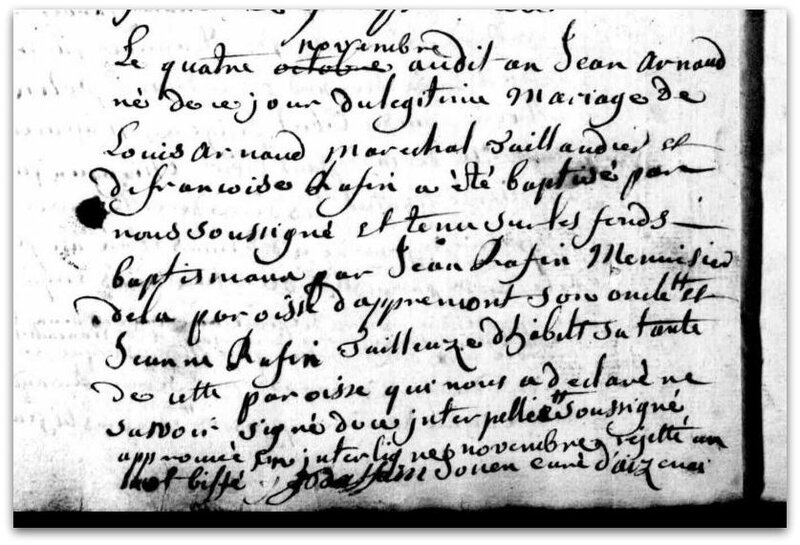 novembre
Le quatre octobre audit an Jean Arnaud
né de ce jour du legitime Mariage de
Louis Arnaud Marechal Taillandier et
de francoise Rafin a été baptisé par
nous soussigné et tenu sur les fonds
baptismaux par Jean Rafin Menuisier
de la paroisse d'appremont son oncle et
Jeanne Rafin Tailleuze d'habit sa tante
de cette paroisse qui nous a declaré ne
savoir signé de ce interpellée soussigné
approuvé en interligne novembre rejetté un
mot biffé curé d'aizenai